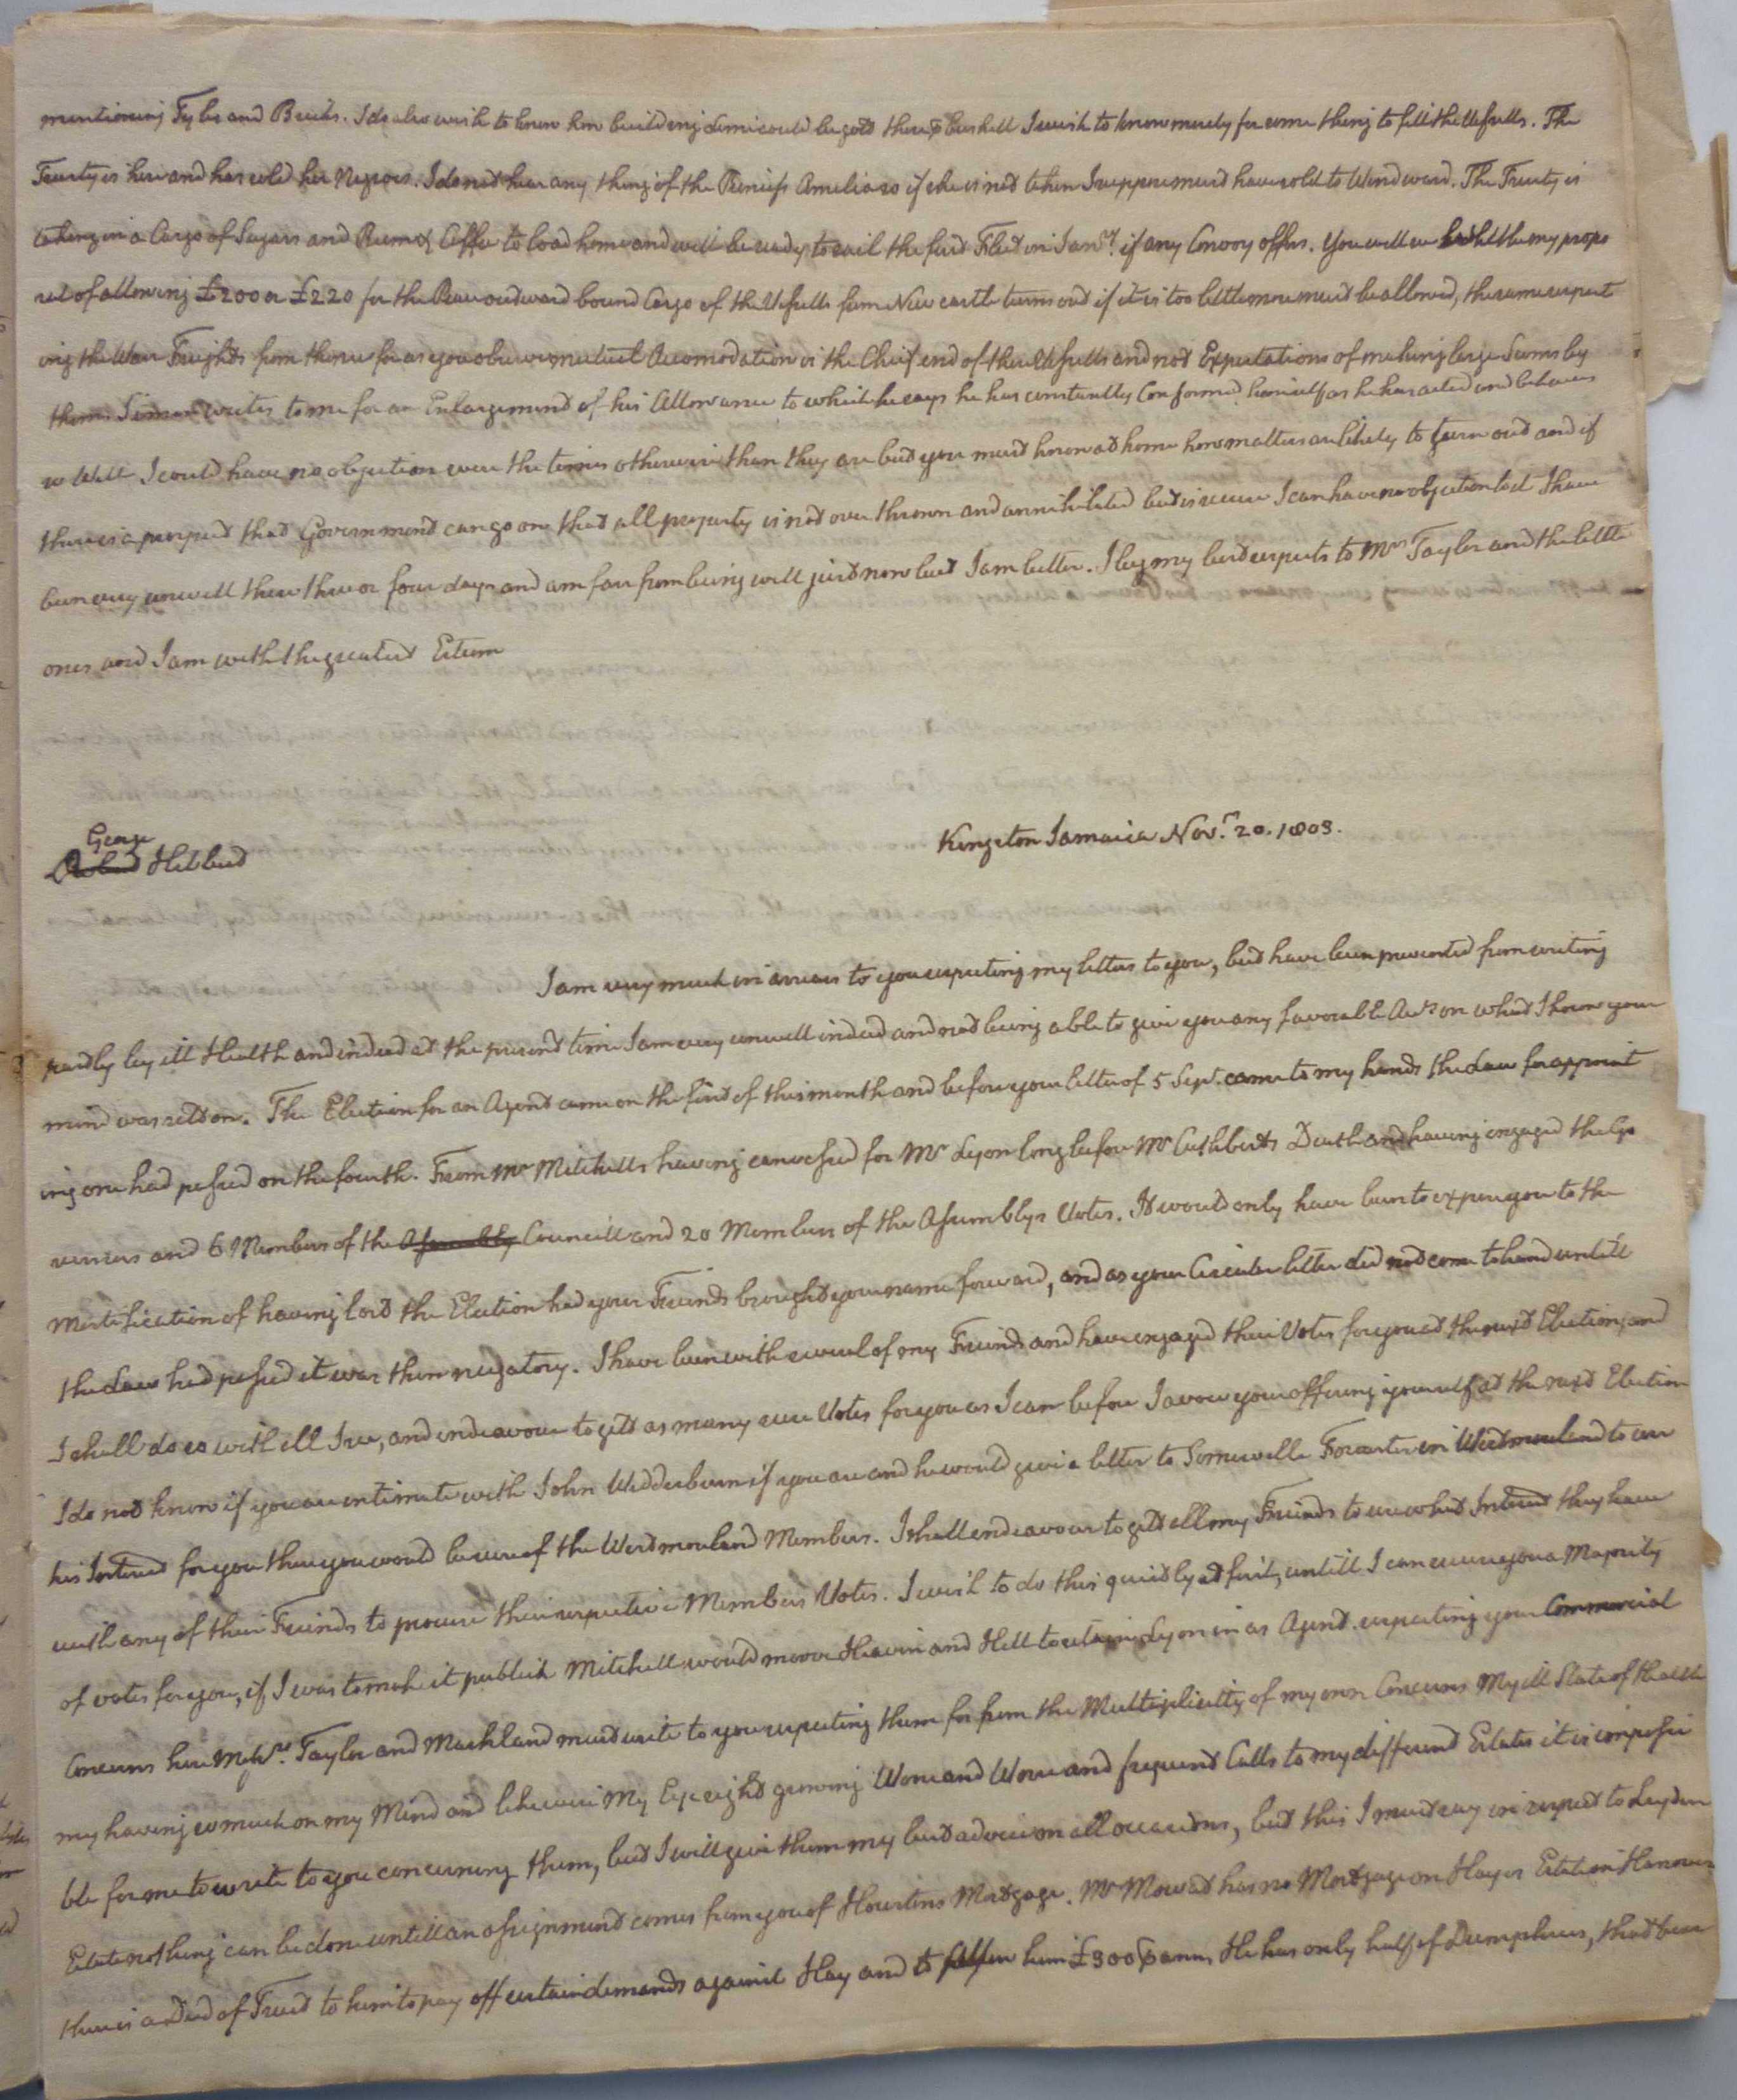 mentioning Tyles and Bricks. I do also wish to know how building Lime could be gott there ⅌ bushell I wish to know merely for some thing to fill the Usefulls. The
Trusty is here and has sold her Negroes. I do not hear any thing of the Princess Amelia so if she is not taken I suppose must have sold to Windward. The Trusty is
taking in a Cargo of Sugars and Rum & Coffee to load home and will be ready to sail the first Fleet in Janry. if any Convoy offers. You will see what the my propo
sal of allowing £200 or £220 for the outward bound Cargo of the Usefulls from New castle turns out if it is too little more must be allowed, the same respect
ing the Ware Freights from thence for as you observe mutual Accomodation is the Chief end of these Usefulls and not Expectations of making large Sums by
them. Simon writes to me for an Enlargement of his Allowance to which he says he has constantly Conformed himself as he has acted and behaves
so Well I could have no objection were the times otherwise than they are but you must know at home how matters are likely to turn out and if
there is a prospect that Government can go on that all property is not over thrown and annihilated but is secure I can have no objection to it I have
been very unwell these three or four days and am far from being well just now but I am better. I beg my best respects to Mrs Taylor and the little
ones and I am with the greatest Esteem
George
Robert Hibbert
Kingston Jamaica Novr. 20. 1803.
I am very much in arrears to you respecting my letters to you, but have been prevented from writing
partly by ill Health and indeed at the present time I am very unwell indeed and not being able to give you any favorable Acts on what I know your
mind was sett on. The Election for an Agent came on the first of this month and before your letter of 5 Sept. came to my hands the Law for appoint
ing one had passed on the fourth. From Mr Mitchells having canvassed for Mr Lyon long before Mr Cuthberts Death and having engaged the Go
vernors and 6 Members of the Assembly Councill and 20 Members of the Assemblys Votes. It would only have been to expose you to the
Mortification of having lost the Election had your Friends brought your name forward, and as your Circular letter did not come to hand untill
the Law had passed it was then nugatory. I have been with several of my Friends and have engaged their Votes for you at the next Election, and
I shall do so with all I see, and endeavour to gett as many sure Votes for you as I can before I avow your offering yourself at the next Election
I do not know if you are intimate with John Wedderburn if you are and he would give a letter to Somervelle Forrester in Westmoreland to use
his Interest for you then you would be sure of the Westmoreland Members. I shall endeavour to gett all my Friends to use what Interest they have
with any of their Friends to procure their respective Members Votes. I wish to do this quietly at first, untill I can secure you a Majority
of votes for you, if I was to make it publick Mitchell would moove Heaven and Hell to retain Lyon in as Agent. respecting your Commercial
Concerns here Messrs. Taylor and Markland must write to you respecting them for from the Multiplicitty of my own Concerns My ill State of Health
my having so much on my Mind and likewise My Eye sight growing Worse and Worse and frequent Calls to my different Estates it is impossi
ble for me to write to you concerning them, but I will give them my best advice on all occasions, but this I must say in respect to Leyden
Estate nothing can be done untill an assignment comes from you of Hourtins Mortgage. Mr Mowat has no Mortgage on Hayes Estate in Hanover
there is a Deed of Trust to him to pay off certain demands against Hay and to allow him £300 ⅌ ann, He has only half of Dumphries, that bear